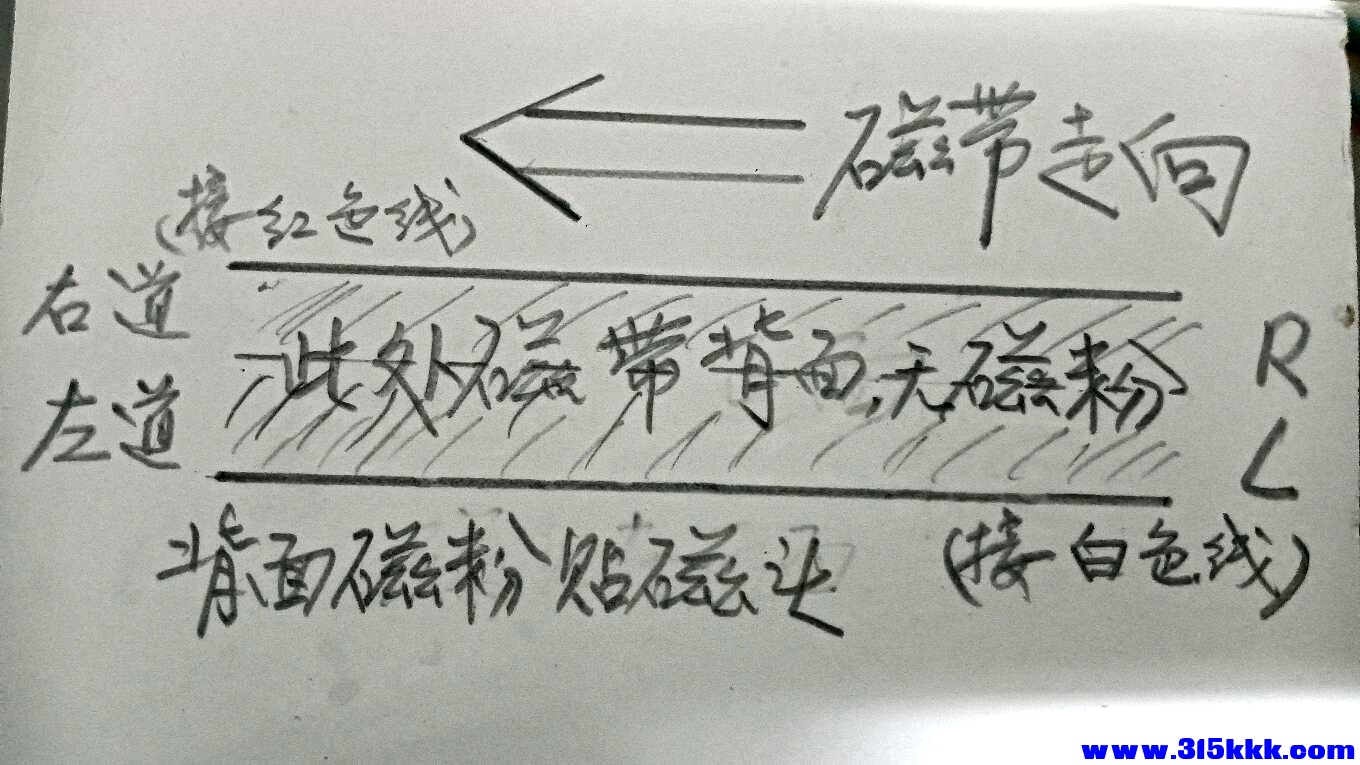 磁带走向
(接红色线)
右道 R
此处磁带背面,无磁粉
左道 L
背面磁粉贴磁头 (接白色线)
www.315kkk.com